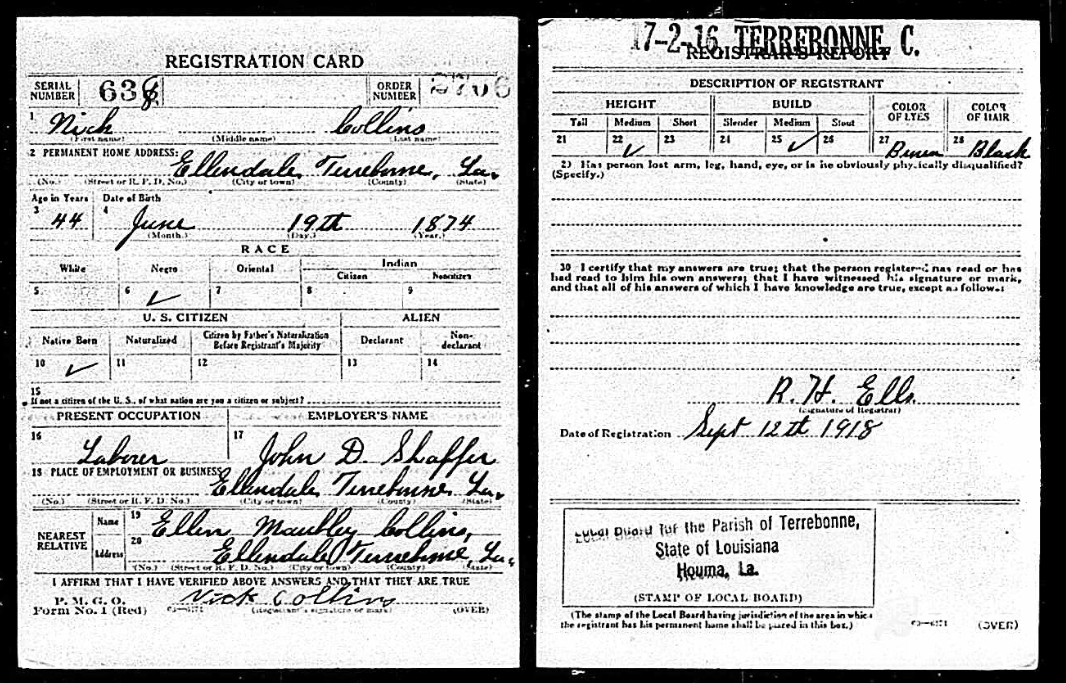 REGISTRATION CARD
SERIAL NUMBER 638 ORDER NUMBER
1 Nick Collins
(First name) (Middle name) (Last name)
2 PERMANENT HOME ADDRESS:
Ellendale Terrebonne, La.
(No.) (Street or R. F. D. No.) (City or town) (County) (State)
Age in Years Date of Birth
3 44 4 June 19th 1874
(Month.) (Day.) (Year.)
RACE
White Negro Oriental Indian
Citizen Noncitizen
5 6 ✓ 7 8 9
U. S. CITIZEN ALIEN
Native Born Naturalized Citizen by Father's Naturalization Before Registrant's Majority Declarant Non-declarant
10 ✓ 11 12 13 14
15
If not a citizen of the U. S., of what nation are you a citizen or subject?
PRESENT OCCUPATION EMPLOYER'S NAME
16 Laborer 17 John D. Shaffer
18 PLACE OF EMPLOYMENT OR BUSINESS
Ellendale Terrebonne La.
(No.) (Street or R. F. D. No.) (City or town) (County) (State)
NEAREST RELATIVE Name 19 Ellen Collins,
Address 20 Ellendale Terrebonne, La.
(No.) (Street or R. F. D. No.) (City or town) (County) (State)
I AFFIRM THAT I HAVE VERIFIED ABOVE ANSWERS AND THAT THEY ARE TRUE
P. M. G. O.
Form No. 1 (Red) Nick Collins
(Registrant's signature or mark) (OVER)
17-2-16 TERREBONNE C.
REGISTRAR'S REPORT
DESCRIPTION OF REGISTRANT
HEIGHT BUILD COLOR OF EYES COLOR OF HAIR
Tall Medium Short Slender Medium Stout
21 22 ✓ 23 24 25 ✓ 26 27 Brown 28 Black
29 Has person lost arm, leg, hand, eye, or is he obviously physically disqualified?
(Specify.)
30 I certify that my answers are true; that the person registered has read or has
had read to him his own answers; that I have witnessed his signature or mark,
and that all of his answers of which I have knowledge are true, except as follows:
R. H. Ells
(Signature of Registrar)
Date of Registration Sept 12th 1918
Local Board for the Parish of Terrebonne,
State of Louisiana
Houma, La.
(STAMP OF LOCAL BOARD)
(The stamp of the Local Board having jurisdiction of the area in which
the registrant has his permanent home shall be placed in this box.)
(OVER)